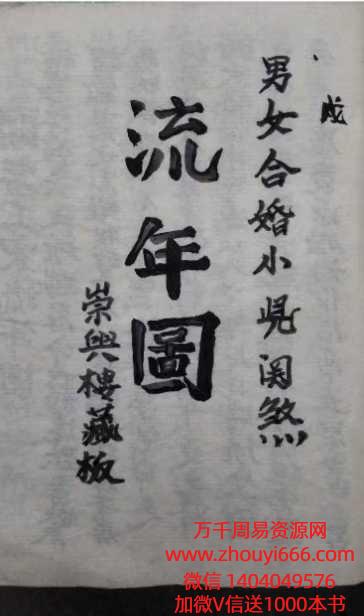 戊
男女合婚小児関煞
流年圖
崇興樓藏板
万千周易资源网
www.zhouyi666.com
微信 1404049576
加微V信送1000本书